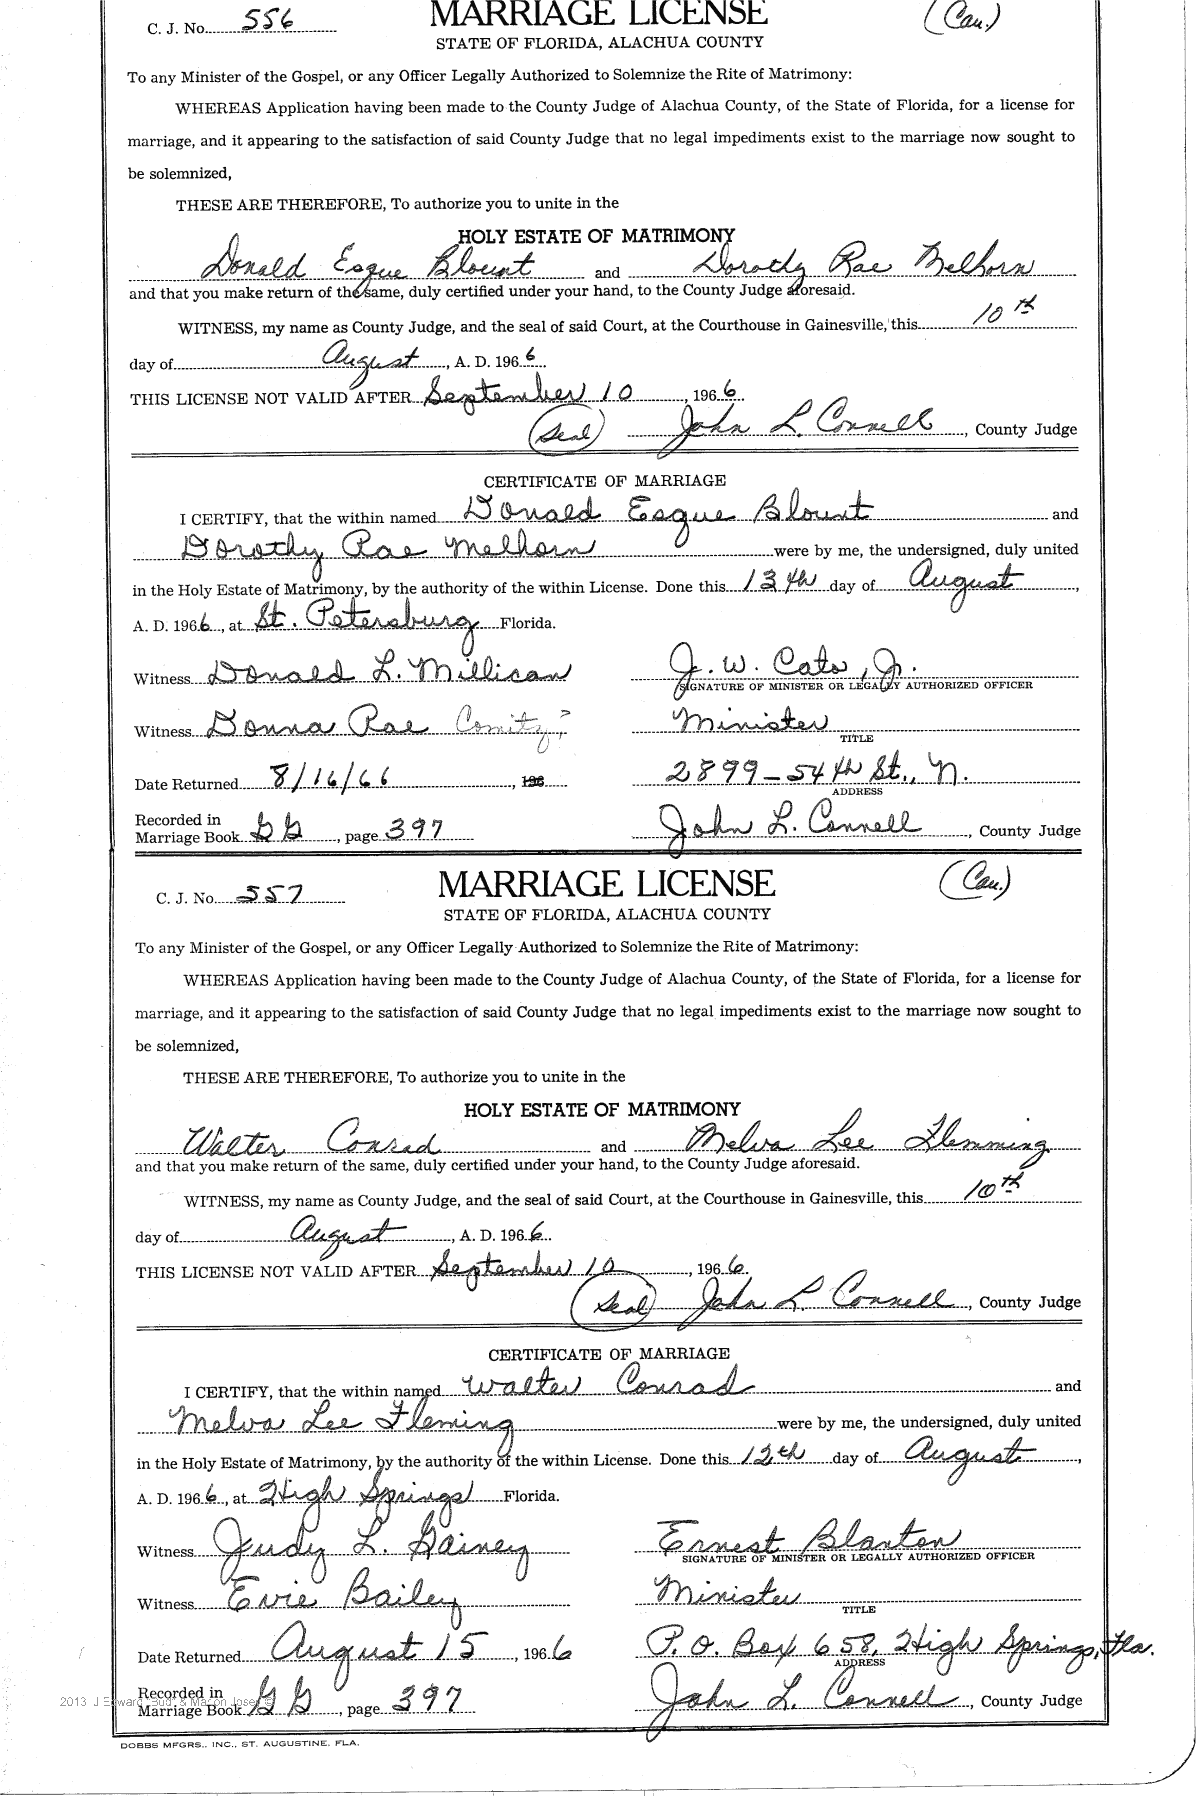 C. J. No. 556 MARRIAGE LICENSE (Cau.)
STATE OF FLORIDA, ALACHUA COUNTY
To any Minister of the Gospel, or any Officer Legally Authorized to Solemnize the Rite of Matrimony:
WHEREAS Application having been made to the County Judge of Alachua County, of the State of Florida, for a license for
marriage, and it appearing to the satisfaction of said County Judge that no legal impediments exist to the marriage now sought to
be solemnized,
THESE ARE THEREFORE, To authorize you to unite in the
HOLY ESTATE OF MATRIMONY
Donald Esque Blount and Dorothy Rae Melhorn
and that you make return of the same, duly certified under your hand, to the County Judge aforesaid.
WITNESS, my name as County Judge, and the seal of said Court, at the Courthouse in Gainesville, this 10th
day of August, A. D. 1966
THIS LICENSE NOT VALID AFTER September 10, 1966.
(Seal) John L. Connell, County Judge
CERTIFICATE OF MARRIAGE
I CERTIFY, that the within named Donald Esque Blount and
Dorothy Rae Melhorn were by me, the undersigned, duly united
in the Holy Estate of Matrimony, by the authority of the within License. Done this 13th day of August,
A. D. 1966, at St. Petersburg Florida.
Witness Donald L. Millican J. W. Cato, Jr.
SIGNATURE OF MINISTER OR LEGALLY AUTHORIZED OFFICER
Witness Donna Rae Minister
TITLE
Date Returned 8/16/66, 196 2899-54th St., N.
ADDRESS
Recorded in
Marriage Book GG, page 397 John L. Connell, County Judge
C. J. No. 557 MARRIAGE LICENSE (Cau.)
STATE OF FLORIDA, ALACHUA COUNTY
To any Minister of the Gospel, or any Officer Legally Authorized to Solemnize the Rite of Matrimony:
WHEREAS Application having been made to the County Judge of Alachua County, of the State of Florida, for a license for
marriage, and it appearing to the satisfaction of said County Judge that no legal impediments exist to the marriage now sought to
be solemnized,
THESE ARE THEREFORE, To authorize you to unite in the
HOLY ESTATE OF MATRIMONY
Walter Conrad and Melva Lee Flemming
and that you make return of the same, duly certified under your hand, to the County Judge aforesaid.
WITNESS, my name as County Judge, and the seal of said Court, at the Courthouse in Gainesville, this 10th
day of August, A. D. 1966.
THIS LICENSE NOT VALID AFTER September 10, 1966.
(Seal) John L. Connell, County Judge
CERTIFICATE OF MARRIAGE
I CERTIFY, that the within named Walter Conrad and
Melva Lee Fleming were by me, the undersigned, duly united
in the Holy Estate of Matrimony, by the authority of the within License. Done this 12th day of August,
A. D. 1966, at High Springs Florida.
Witness Judy L. Gainey Ernest Blanton
SIGNATURE OF MINISTER OR LEGALLY AUTHORIZED OFFICER
Witness Evie Bailey Minister
TITLE
Date Returned August 15, 1966 P. O. Box 658, High Springs, Fla.
ADDRESS
Recorded in
Marriage Book GG, page 397 John L. Connell, County Judge
2013 J Edward "Bud" & Macon Josey ©
DOBBS MFGRS., INC., ST. AUGUSTINE, FLA.